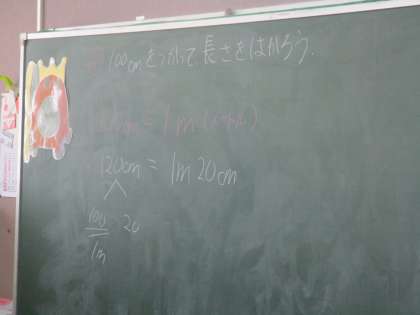 100cmをつかって長さをはかろう.
100cm = 1m
120cm = 1m20cm
100 20
1m